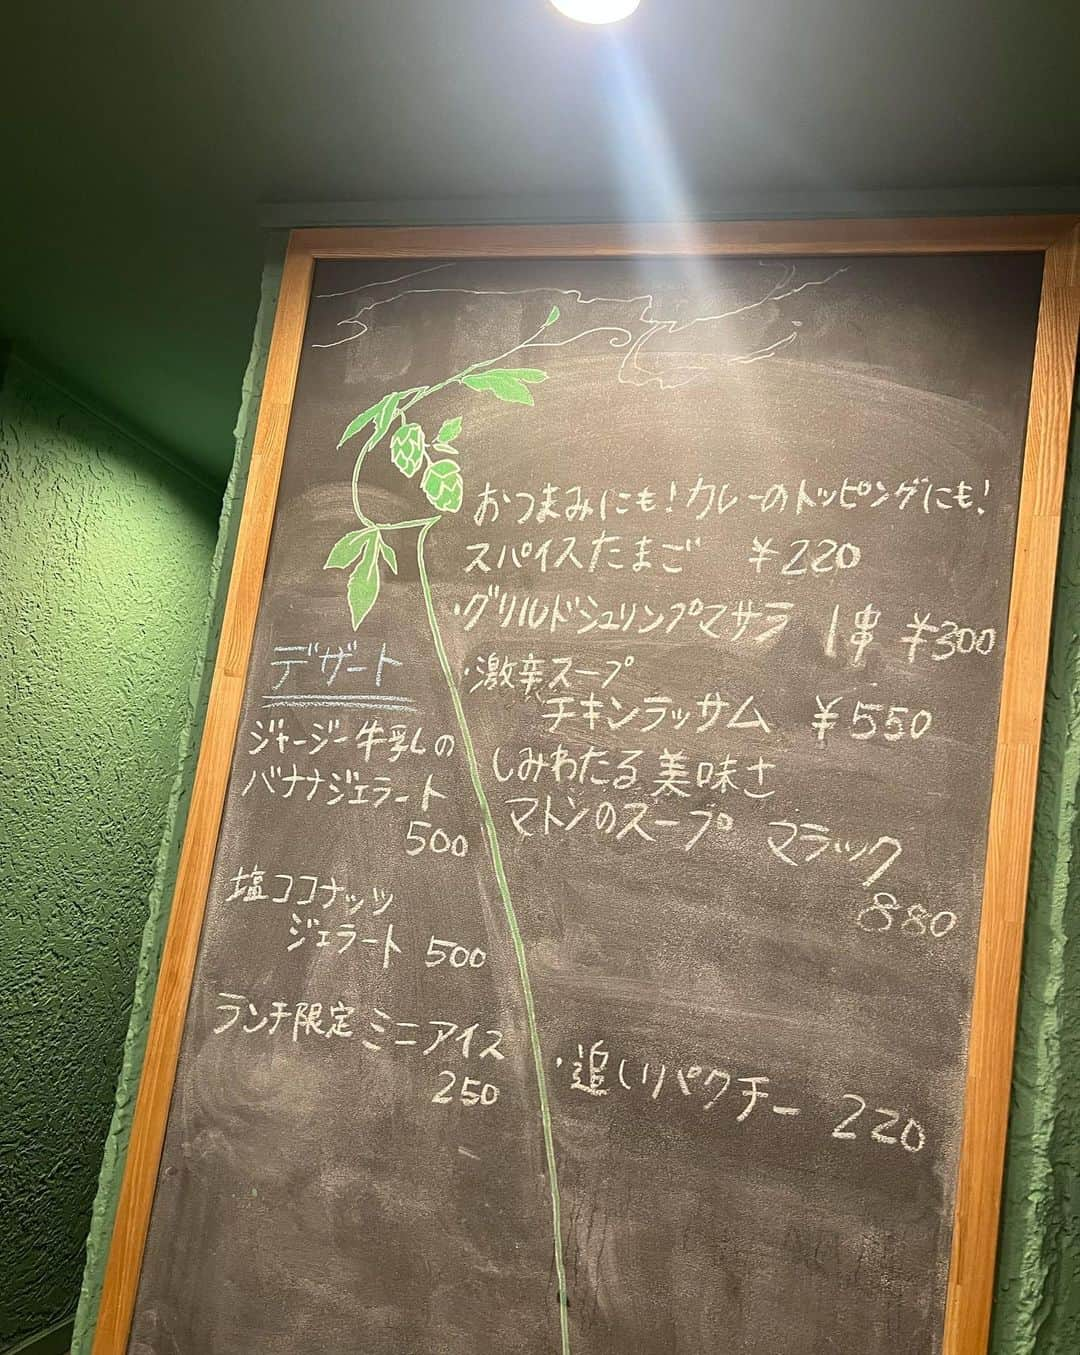 おつまみにも！カレーのトッピングにも！
スパイスたまご ￥220
・グリルドシュリンプマサラ 1串 ￥300
・激辛スープ
チキンラッサム ￥550
しみわたる美味さ
マトンのスープ マラック
880
・追しパクチー 220
デザート
ジャージー牛乳の
バナナジェラート
500
塩ココナッツ
ジェラート 500
ランチ限定 ミニアイス
250